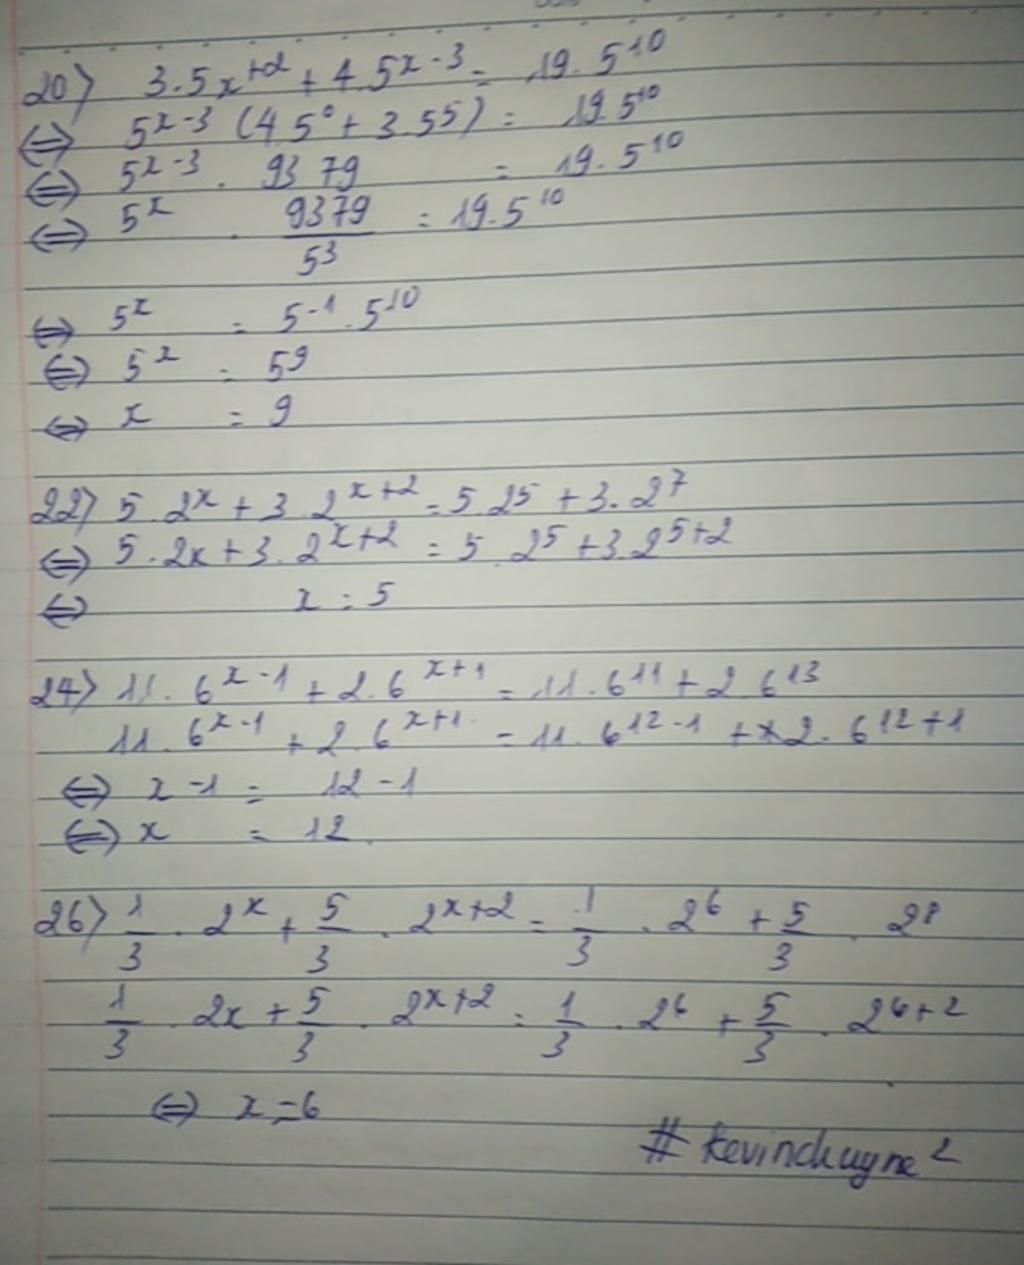 20) 3.5x^{+2} + 4.5^{x-3} = 19.5^{10}
⇔ 5^{x-3} (4.5^0 + 3.5^5) = 19.5^{10}
⇔ 5^{x-3} . 9379 = 19.5^{10}
⇔ 5^x . \frac{9379}{5^3} = 19.5^{10}
⇔ 5^x = 5^{-1} . 5^{10}
⇔ 5^x = 5^9
⇔ x = 9
22) 5.2^x + 3.2^{x+2} = 5.2^5 + 3.2^7
⇔ 5.2x + 3.2^{x+2} = 5.2^5 + 3.2^{5+2}
⇔ x = 5
24) 11.6^{x-1} + 2.6^{x+1} = 11.6^{11} + 2.6^{13}
11.6^{x-1} + 2.6^{x+1} = 11.6^{12-1} + 2.6^{12+1}
⇔ x-1 = 12-1
⇔ x = 12.
26) \frac{1}{3} . 2^x + \frac{5}{3} . 2^{x+2} = \frac{1}{3} . 2^6 + \frac{5}{3} . 2^8
\frac{1}{3} . 2x + \frac{5}{3} . 2^{x+2} = \frac{1}{3} . 2^6 + \frac{5}{3} . 2^{6+2}
⇔ x = 6